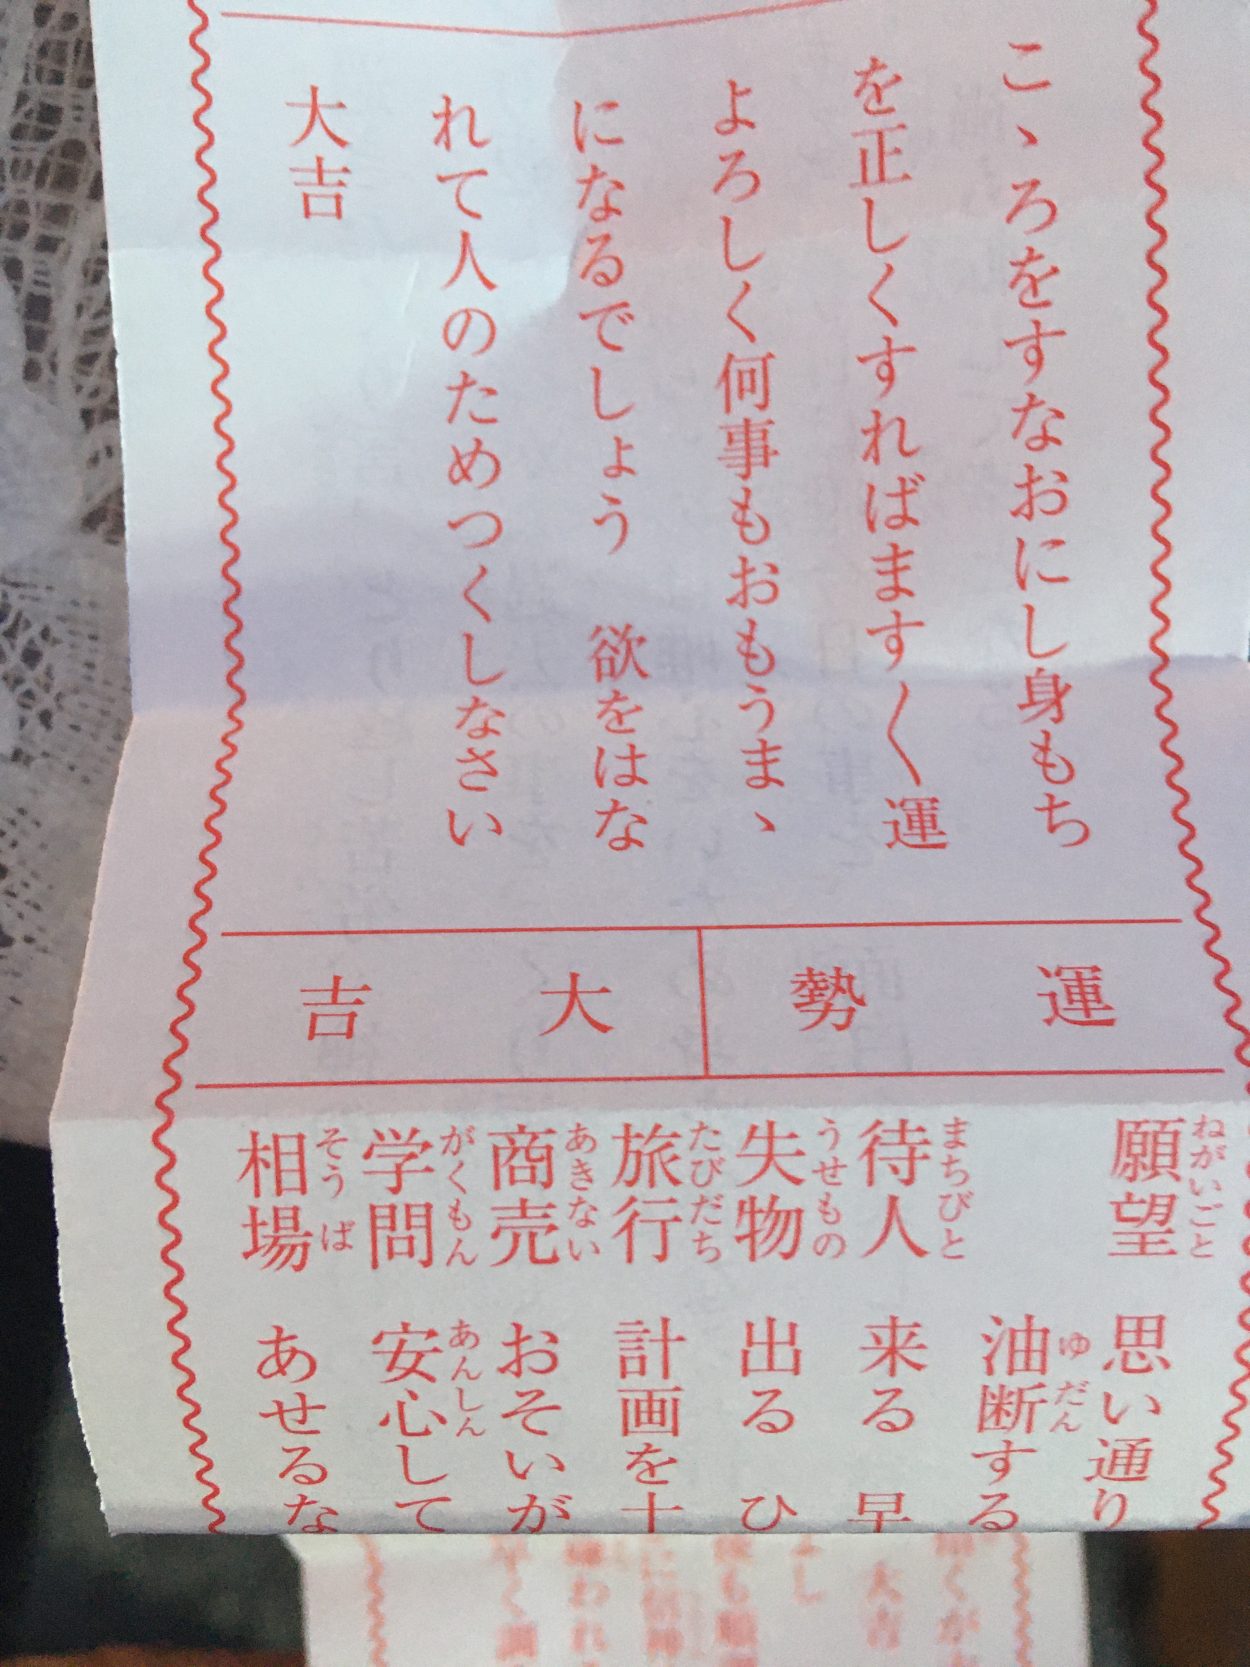 こゝろをすなおにし身もち
を正しくすればます〳〵運
よろしく何事もおもうまゝ
になるでしょう　欲をはな
れて人のためつくしなさい
大吉
運勢　大吉
願望　思い通り
油断する
待人　来る　早
失物　出る　ひ
旅行　計画を十
商売　おそいが
学問　安心して
相場　あせるな
ねがいごと
ゆだん
まちびと
うせもの
たびだち
あきない
がくもん
あんしん
そうば